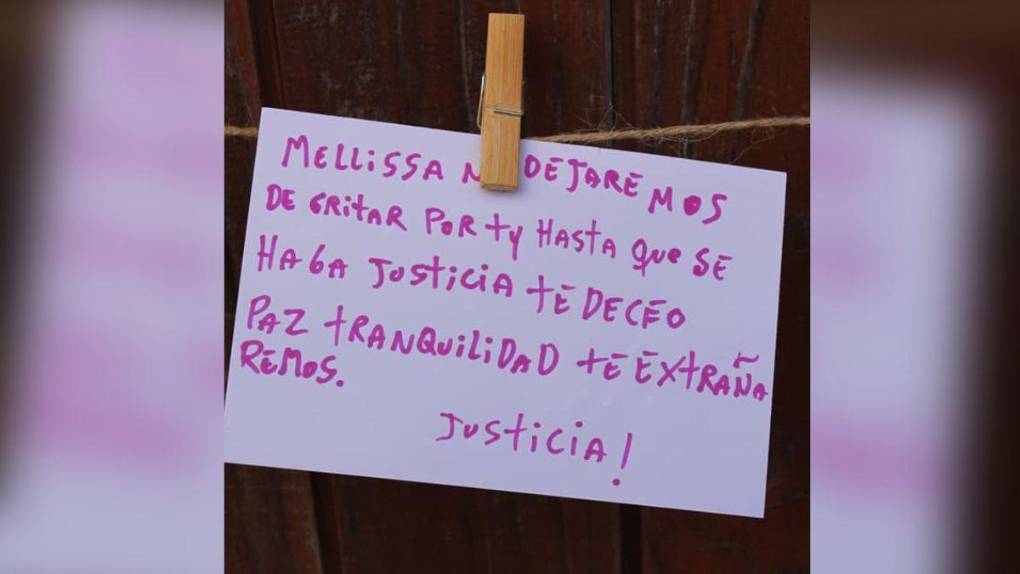 MELLISSA N DEJAREMOS
DE GRITAR POR ty HASTA QUE SE
HAGA JUSTICIA tE DECEO
PAZ tRANQUILIDAD tE EXtRAÑA
REMOS.
JUSTICIA!